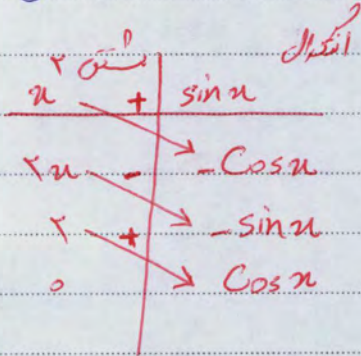 مشتق انتگرال
x² + sin x
۲x - -Cos x
۲ + -sin x
۰ Cos x